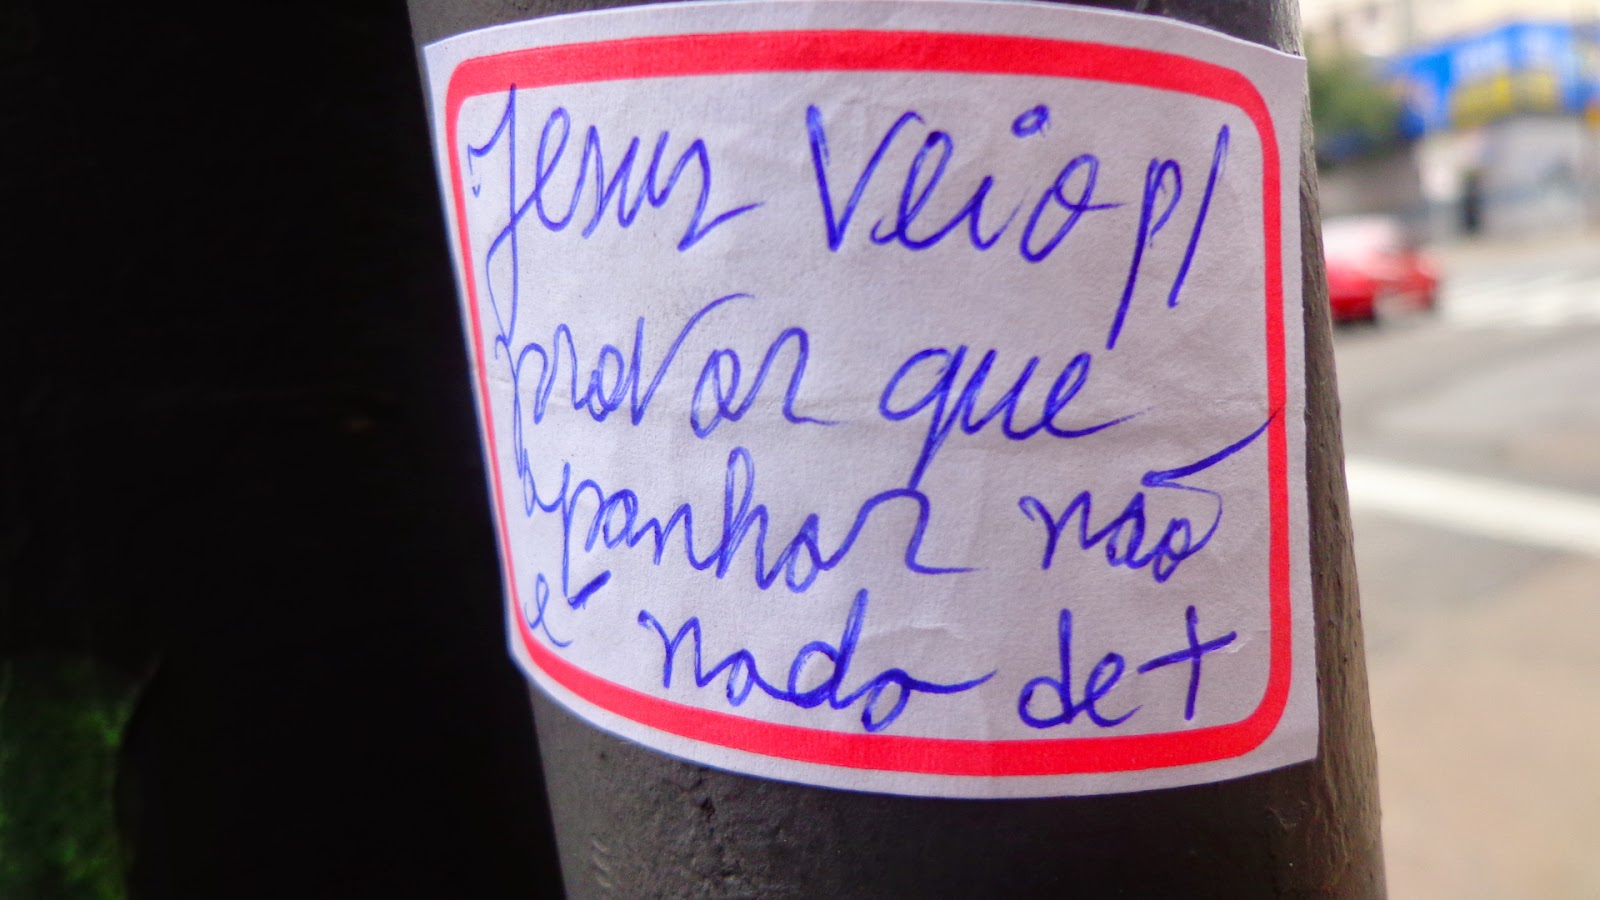 Jesus Veio p/
provar que
apanhar não
é nada de +